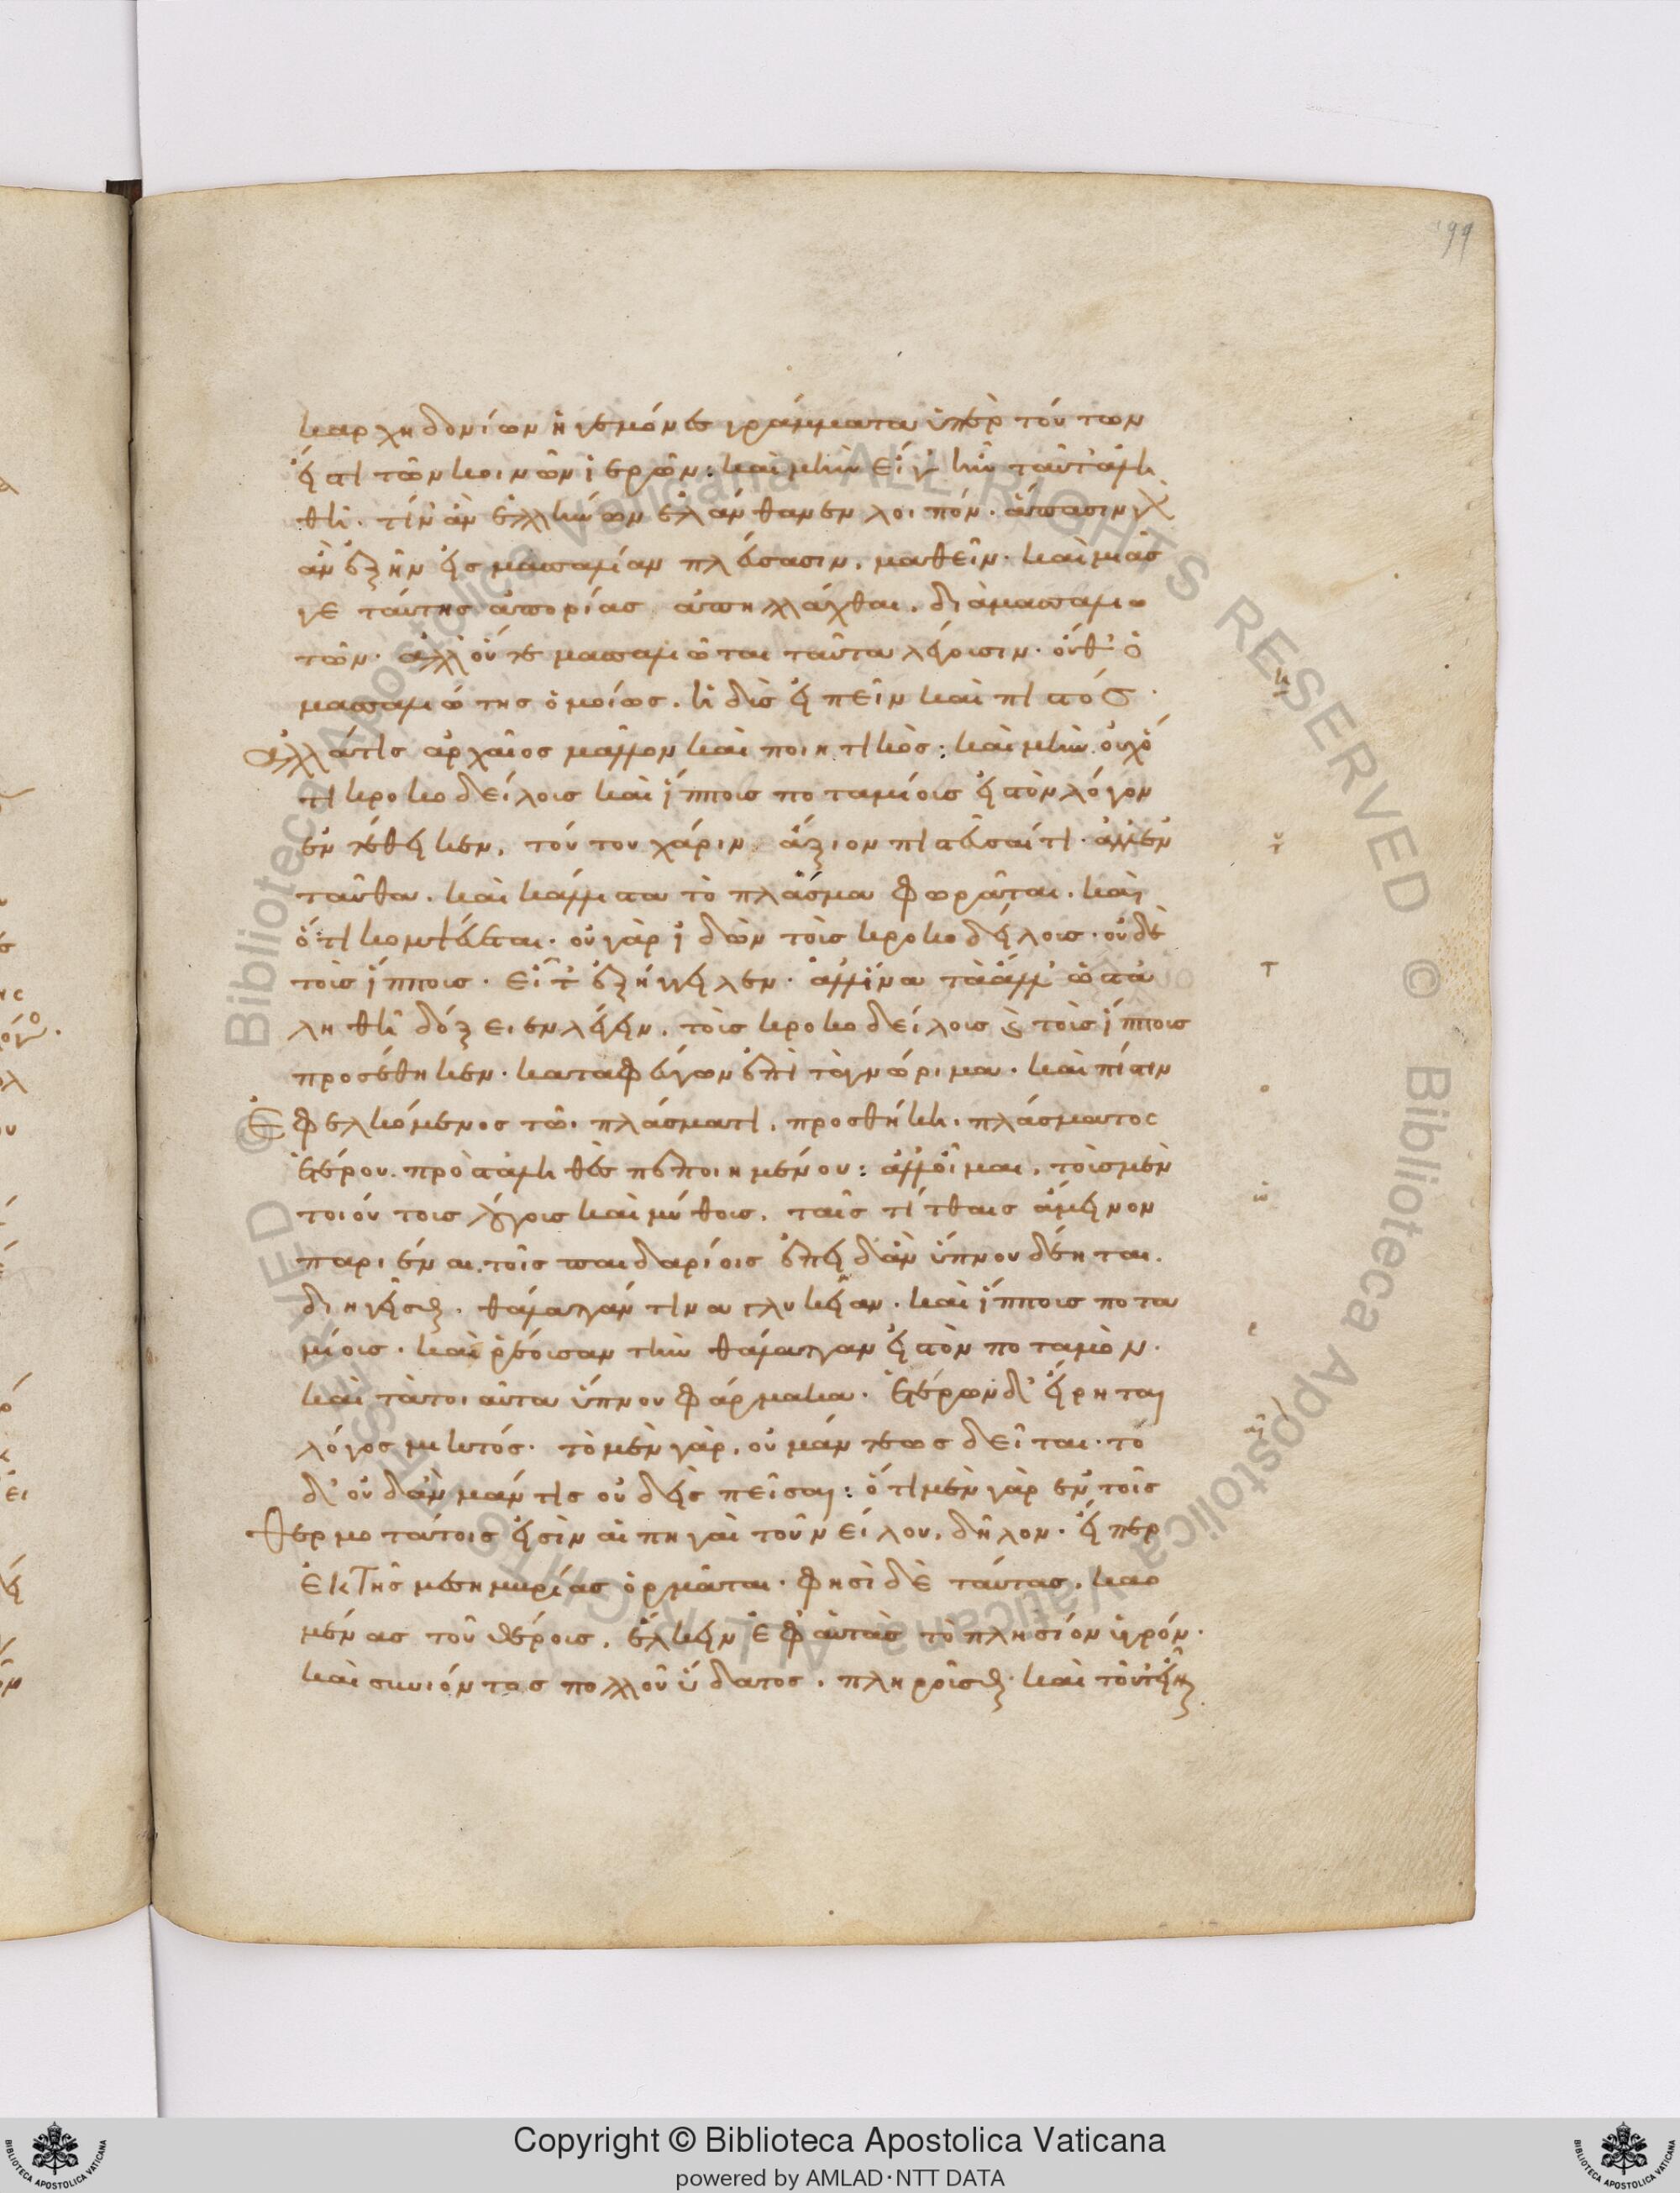 199
καρχηδονίων ἡγεμόνες γράμματα ὑπὲρ τούτων
ἐστὶ τῶν κοινῶν ἱερῶν: καὶ μὴν εἴγ' ἦν ταῦτ' ἀλη
θῆ. τίν' ἂν ἑλλήνων ἐλάνθανεν λοιπόν. ἅπασιν γὰρ
ἂν ἐξῆν ἐς μασσαλίαν πλεύσασιν, μαθεῖν. καὶ μιᾶς
γε ταύτης ἀπορίας ἀπηλλάχθαι. διὰ μασσαλιω
τῶν. ἀλλ' οὔτε μασσαλιῶται ταῦτα λέγουσιν. οὔθ' ὁ
μασσαλιώτης ὁμοίως. ἡδὺς εἰπεῖν καὶ πιστός.
ἀλλά τις ἀρχαῖος μᾶλλον καὶ ποιητικός: καὶ μὴν οὐχ ὅ
τι κροκοδείλοις καὶ ἵπποις ποταμίοις εἰς τὸν λόγον
ἐντέθεικεν, τούτου χάριν ἄξιον πιστεῦσαί τι. ἀλλ' ἐν
ταῦθα. καὶ κάλλιστα τὸ πλάσμα φωρᾶται. καὶ
ὅτι κομψεύεται. οὐ γὰρ ἰδὼν τοῖς κροκοδείλοις. οὐδὲ
τοῖς ἵπποις. εἶτ' ἐξήγγειλεν. ἀλλ' ἵνα τὰ ἄλλ' ὡς τἀ
ληθῆ δόξειεν λέγειν, τοῖς κροκοδείλοις καὶ τοῖς ἵπποις
προσέθηκεν. καταφεύγων ἐπὶ τὰ γνώριμα. καὶ πίστιν
ἐφελκόμενος τῶι πλάσματι, προσθήκηι πλάσματος
ἑτέρου πρὸς τἀληθὲς πεποιημένου: ἀλλ' οἶμαι, τοῖς μὲν
τοιούτοις λόγοις καὶ μύθοις, ταῖς τίτθαις ἄμεινον
παριέναι, τοῖς παιδαρίοις ἐπειδὰν ὕπνου δέηται.
διηγεῖσθαι. θάλατταν τινα γλυκεῖαν. καὶ ἵππους ποτα
μίους. καὶ ῥέουσαν τὴν θάλατταν εἰς τὸν ποταμόν.
καὶ τὰ τοιαῦτα ὕπνου φάρμακα. ἑτέρων δ' εἴρηται
λόγος μικτός. τὸ μὲν γὰρ, οὐ μάντεως δεῖται. τὸ
δ' οὐδ' ἂν μάντις οὐδεὶς πείσαι: ὅτι μὲν γὰρ ἐν τοῖς
θερμοτάτοις εἰσὶν αἱ πηγαὶ τοῦ νείλου, δῆλον. εἴπερ
ἐκ τῆς μεσημβρίας ὁρμᾶται. φησὶ δὲ ταύτας, καο
μένας τοῦ θέρους, ἕλκειν ἐφ' αὑτὰς τὸ πλησίον ὑγρόν.
καὶ συνιόντος πολλοῦ ὕδατος, πληροῦσθαι. καὶ τοῦτ' εἶν
Copyright © Biblioteca Apostolica Vaticana
powered by AMLAD·NTT DATA